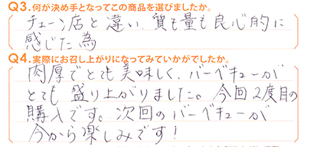 Q3.何が決め手となってこの商品を選びましたか。
チェーン店と違い、質も量も良心的に
感じた為
Q4.実際にお召し上がりになってみていかがでしたか。
肉厚でとても美味しく、バーベキューが
とても盛り上がりました。今回2度目の
購入です。次回のバーベキューが
今から楽しみです!